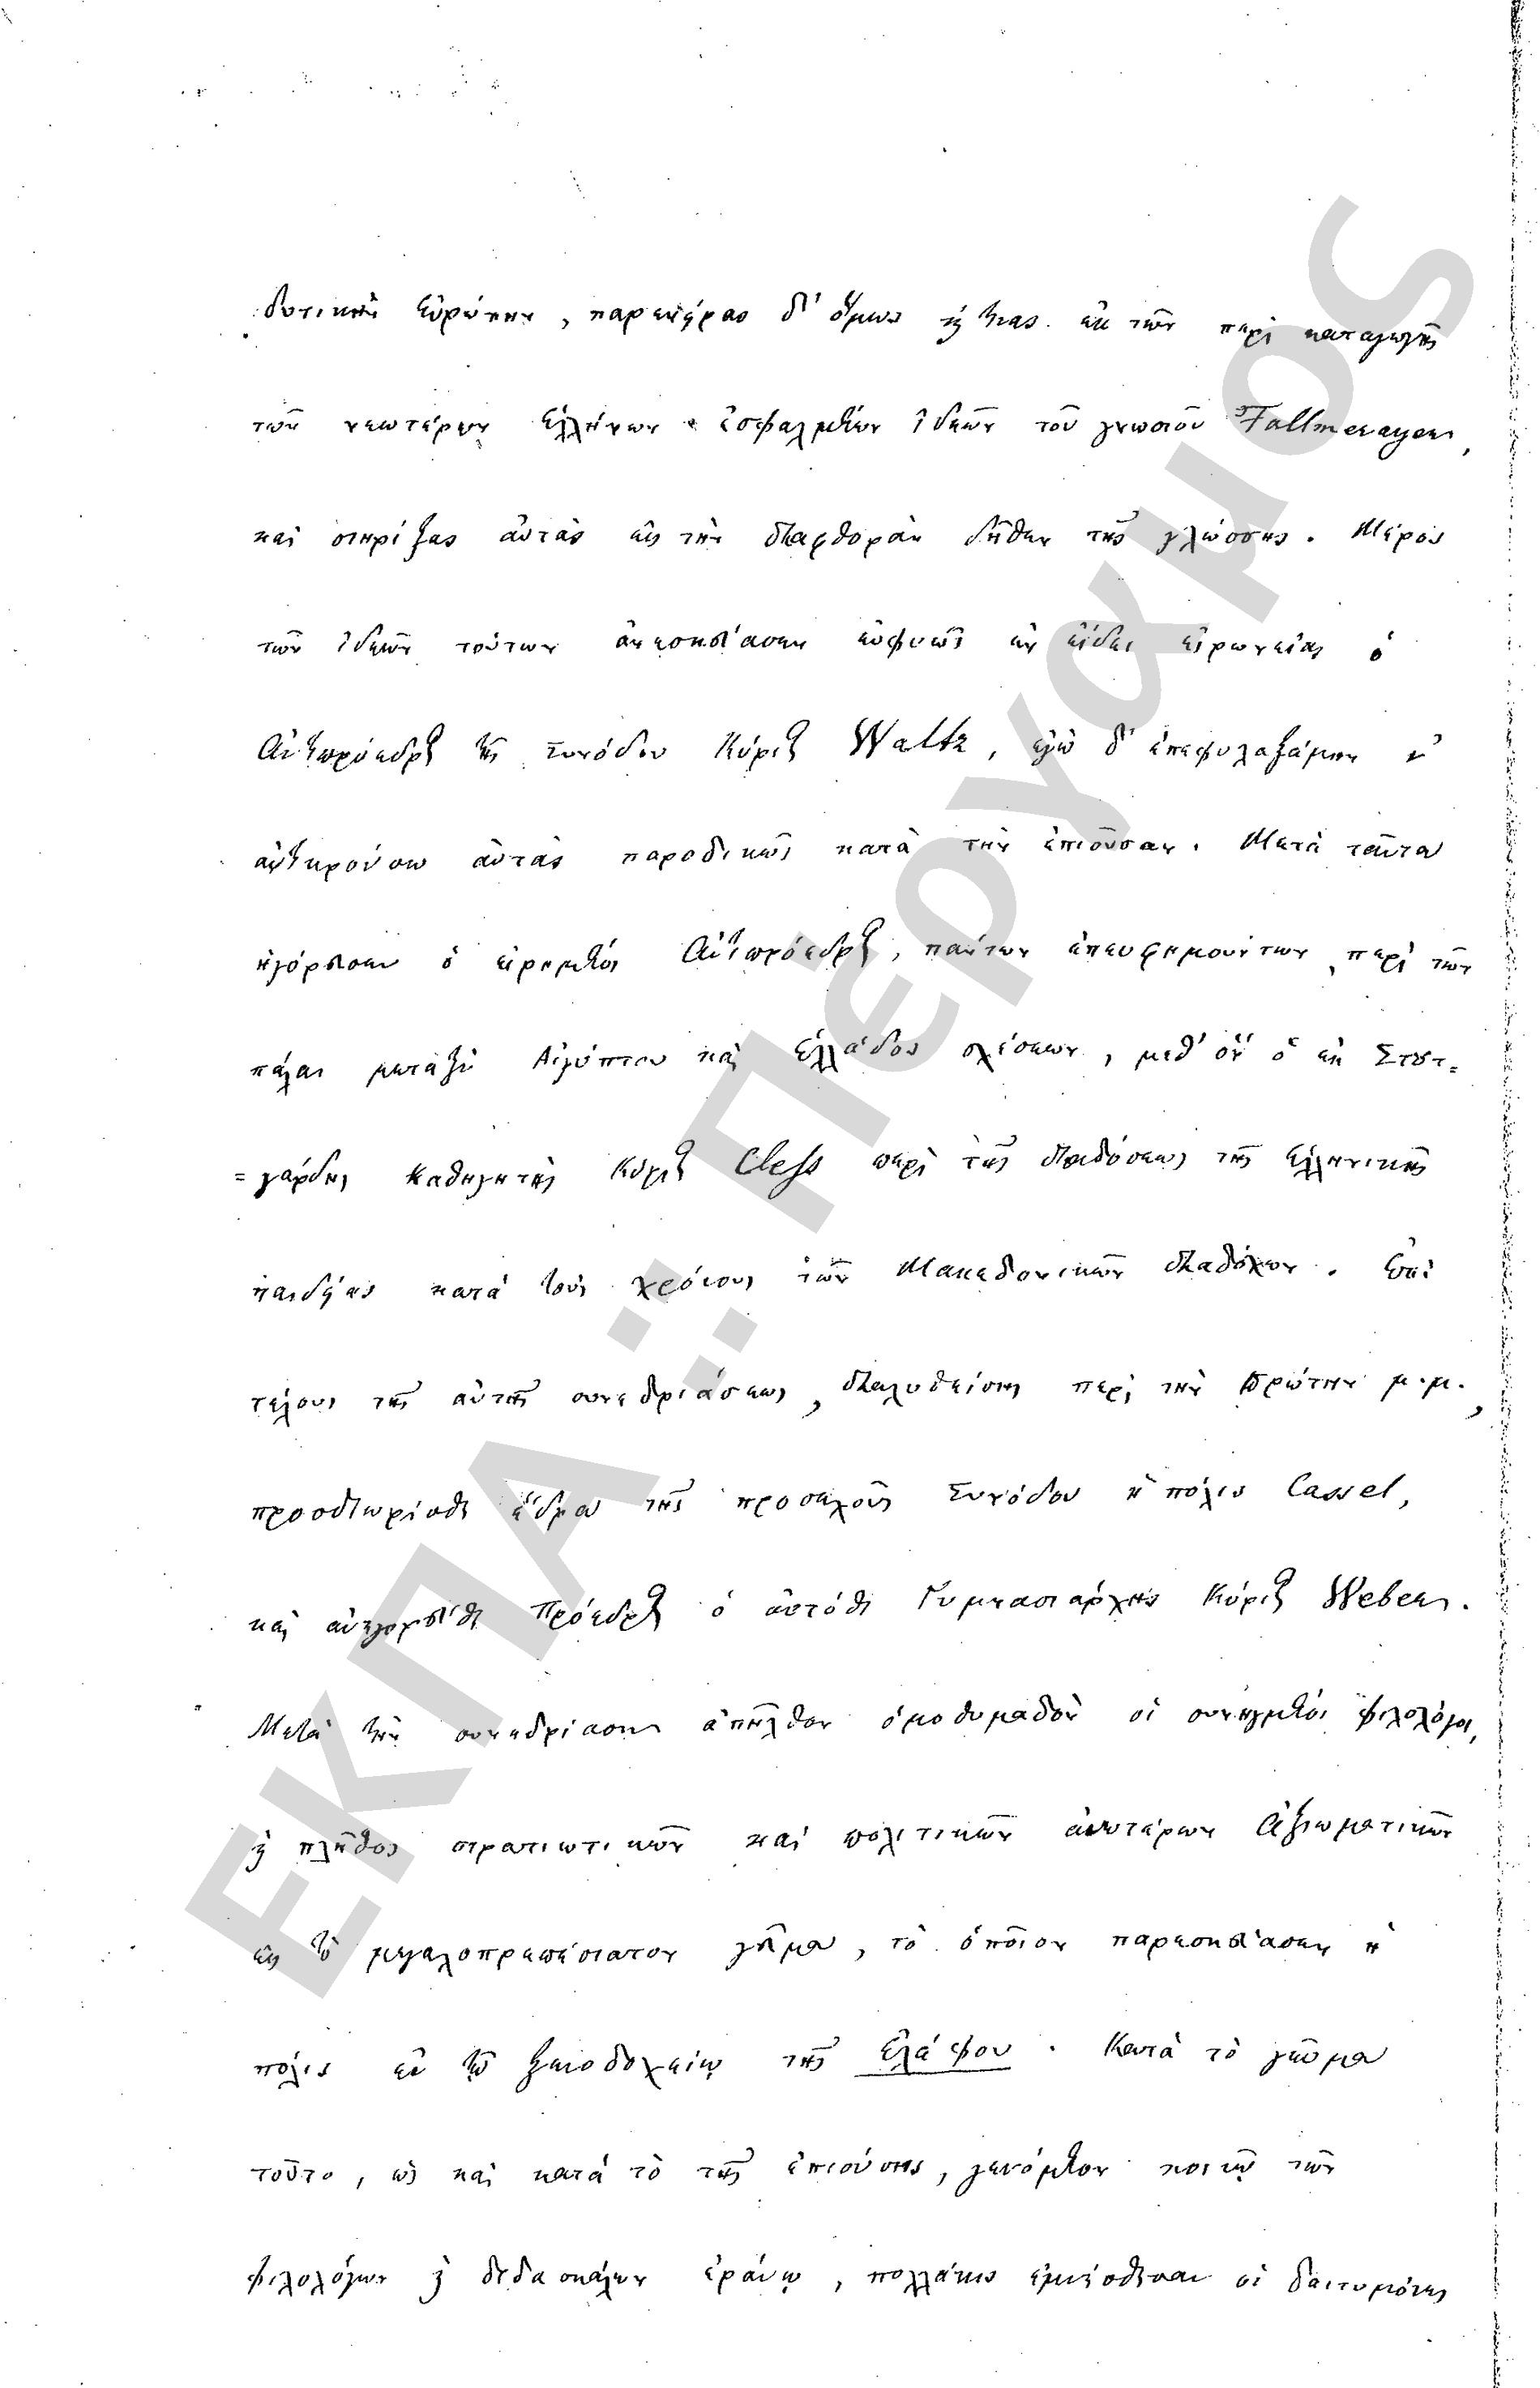 δυτικὴν Εὐρώπην, παρενείρας δ' ὅμως καί τινας ἐκ τῶν περὶ καταγωγῆς
τῶν νεωτέρων Ἑλλήνων ἐσφαλμένων ἰδεῶν τοῦ γνωστοῦ Fallmerayer,
καὶ στηρίξας αὐτὰς εἰς τὴν διαφθορὰν δῆθεν τῆς γλώσσης. Μέρος
τῶν ἰδεῶν τούτων ἀνεσκεύασεν εὐφυῶς ἐν εἴδει εἰρωνείας ὁ
Ἀντιπρόεδρος τῆς Συνόδου Κύριος Waltz, ἐγὼ δ' ἐπεφυλαξάμην ν'
ἀντικρούσω αὐτὰς παροδικῶς κατὰ τὴν ἐπιοῦσαν. Μετὰ ταῦτα
ἠγόρευσεν ὁ εἰρημένος Ἀντιπρόεδρος, πάντων ἐπευφημούντων, περὶ τῶν
πάλαι μεταξὺ Αἰγύπτου καὶ Ἑλλάδος σχέσεων, μεθ' ὃν ὁ ἐκ Στουτ=
=γάρδης Καθηγητὴς Κύριος Cless περὶ τῆς διαδόσεως τῆς Ἑλληνικῆς
παιδείας κατὰ τοὺς χρόνους τῶν Μακεδονικῶν διαδόχων. Ἐπὶ
τέλους τῆς αὐτῆς συνεδριάσεως, διαλυθείσης περὶ τὴν πρώτην μ.μ.,
προσδιωρίσθη ἕδρα τῆς προσεχοῦς Συνόδου ἡ πόλις Cassel,
καὶ ἀνηγορεύθη Πρόεδρος ὁ αὐτόθι Γυμνασιάρχης Κύριος Weber.
Μετὰ τὴν συνεδρίασιν ἀπῆλθον ὁμοθυμαδὸν οἱ συνηγμένοι φιλολόγοι,
καὶ πλῆθος στρατιωτικῶν καὶ πολιτικῶν ἀνωτέρων ἀξιωματικῶν
εἰς τὸ μεγαλοπρεπέστατον γεῦμα, τὸ ὁποῖον παρεσκεύασεν ἡ
πόλις ἐν τῷ ξενοδοχείῳ τῆς Ἐλάφου. Κατὰ τὸ γεῦμα
τοῦτο, ὡς καὶ κατὰ τὸ τῆς ἐπιούσης, γενόμενον κοινῷ τῶν
φιλολόγων καὶ διδασκάλων ἐράνῳ, πολλάκις ἐμνήσθησαν οἱ δαιτυμόνες
ΕΚΠΑ :: Πέργαμος